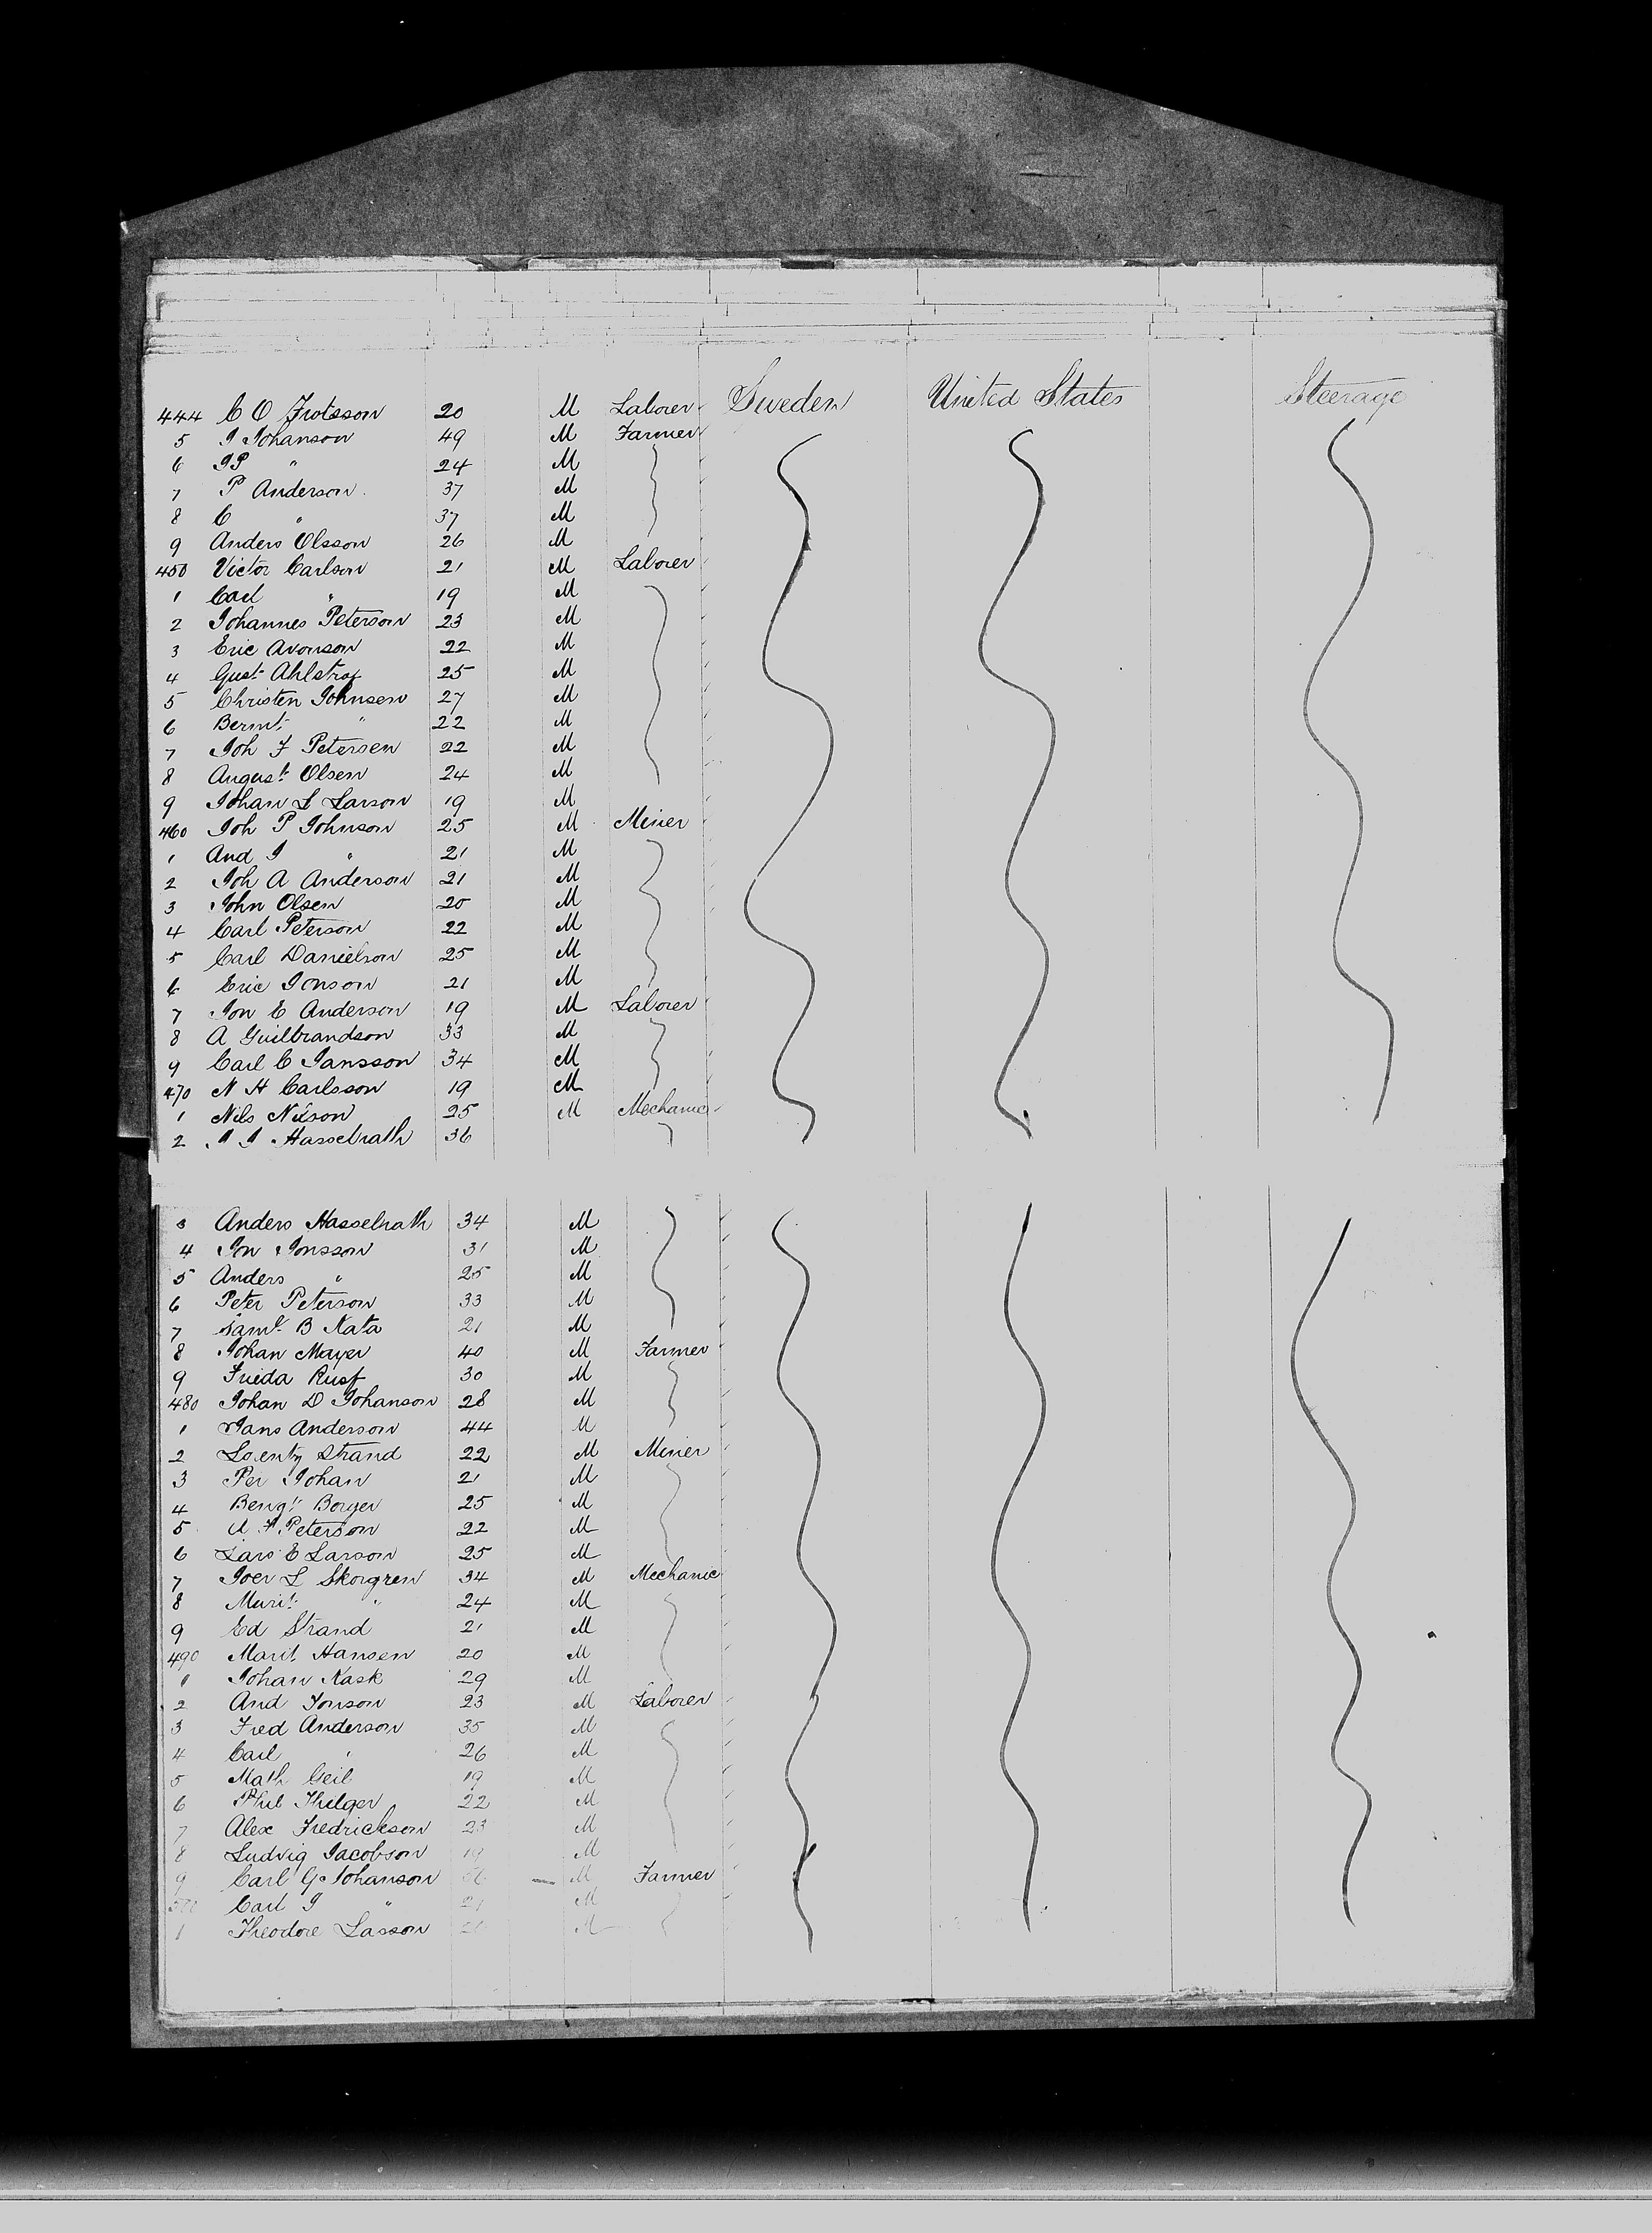 444 C O Frotsson 20 M Laborer Sweden United States Steerage
5 I Johanson 49 M Farmer
6 I P " 24 M
7 P Anderson 37 M
8 C " 37 M
9 Anders Olsson 26 M
450 Victor Carlson 21 M Laborer
1 Carl " 19 M
2 Johannes Peterson 23 M
3 Eric Aronson 22 M
4 Gust Ahlstrof 25 M
5 Christen Johnsen 27 M
6 Bernt " 22 M
7 Joh F Petersen 22 M
8 August Olsen 24 M
9 Johan L Larson 19 M
460 Joh P Johnson 25 M Miner
1 And J " 21 M
2 Joh A Anderson 21 M
3 John Olsen 20 M
4 Carl Peterson 22 M
5 Carl Danielson 25 M
6 Eric Jonson 21 M
7 Jon E Anderson 19 M Laborer
8 A Guilbrandson 33 M
9 Carl C Jansson 34 M
470 N H Carlsson 19 M
1 Nils Nilson 25 M Mechanic
2 J Hasselrath 36
3 Anders Hasselrath 34 M
4 Jon Jonsson 31 M
5 Anders " 25 M
6 Peter Peterson 33 M
7 Saml B Kata 21 M
8 Johan Mayer 40 M Farmer
9 Frieda Rusf 30 M
480 Johan D Johanson 28 M
1 Jans Anderson 44 M
2 Lorentz Strand 22 M Miner
3 Per Johan 21 M
4 Bengt Borger 25 M
5 A F Peterson 22 M
6 Lars E Larson 25 M
7 Joer L Skorgren 34 M Mechanic
8 Marit " 24 M
9 Ed Strand 21 M
490 Marit Hansen 20 M
1 Johan Kask 29 M
2 And Jonson 23 M Laborer
3 Fred Anderson 35 M
4 Carl " 26 M
5 Math Geil 19 M
6 Phil Thilger 22 M
7 Alex Fredrickson 23 M
8 Ludvig Jacobson 19 M
9 Carl G Johanson M Farmer
500 Carl J " 21 M
1 Theodore Lasson M